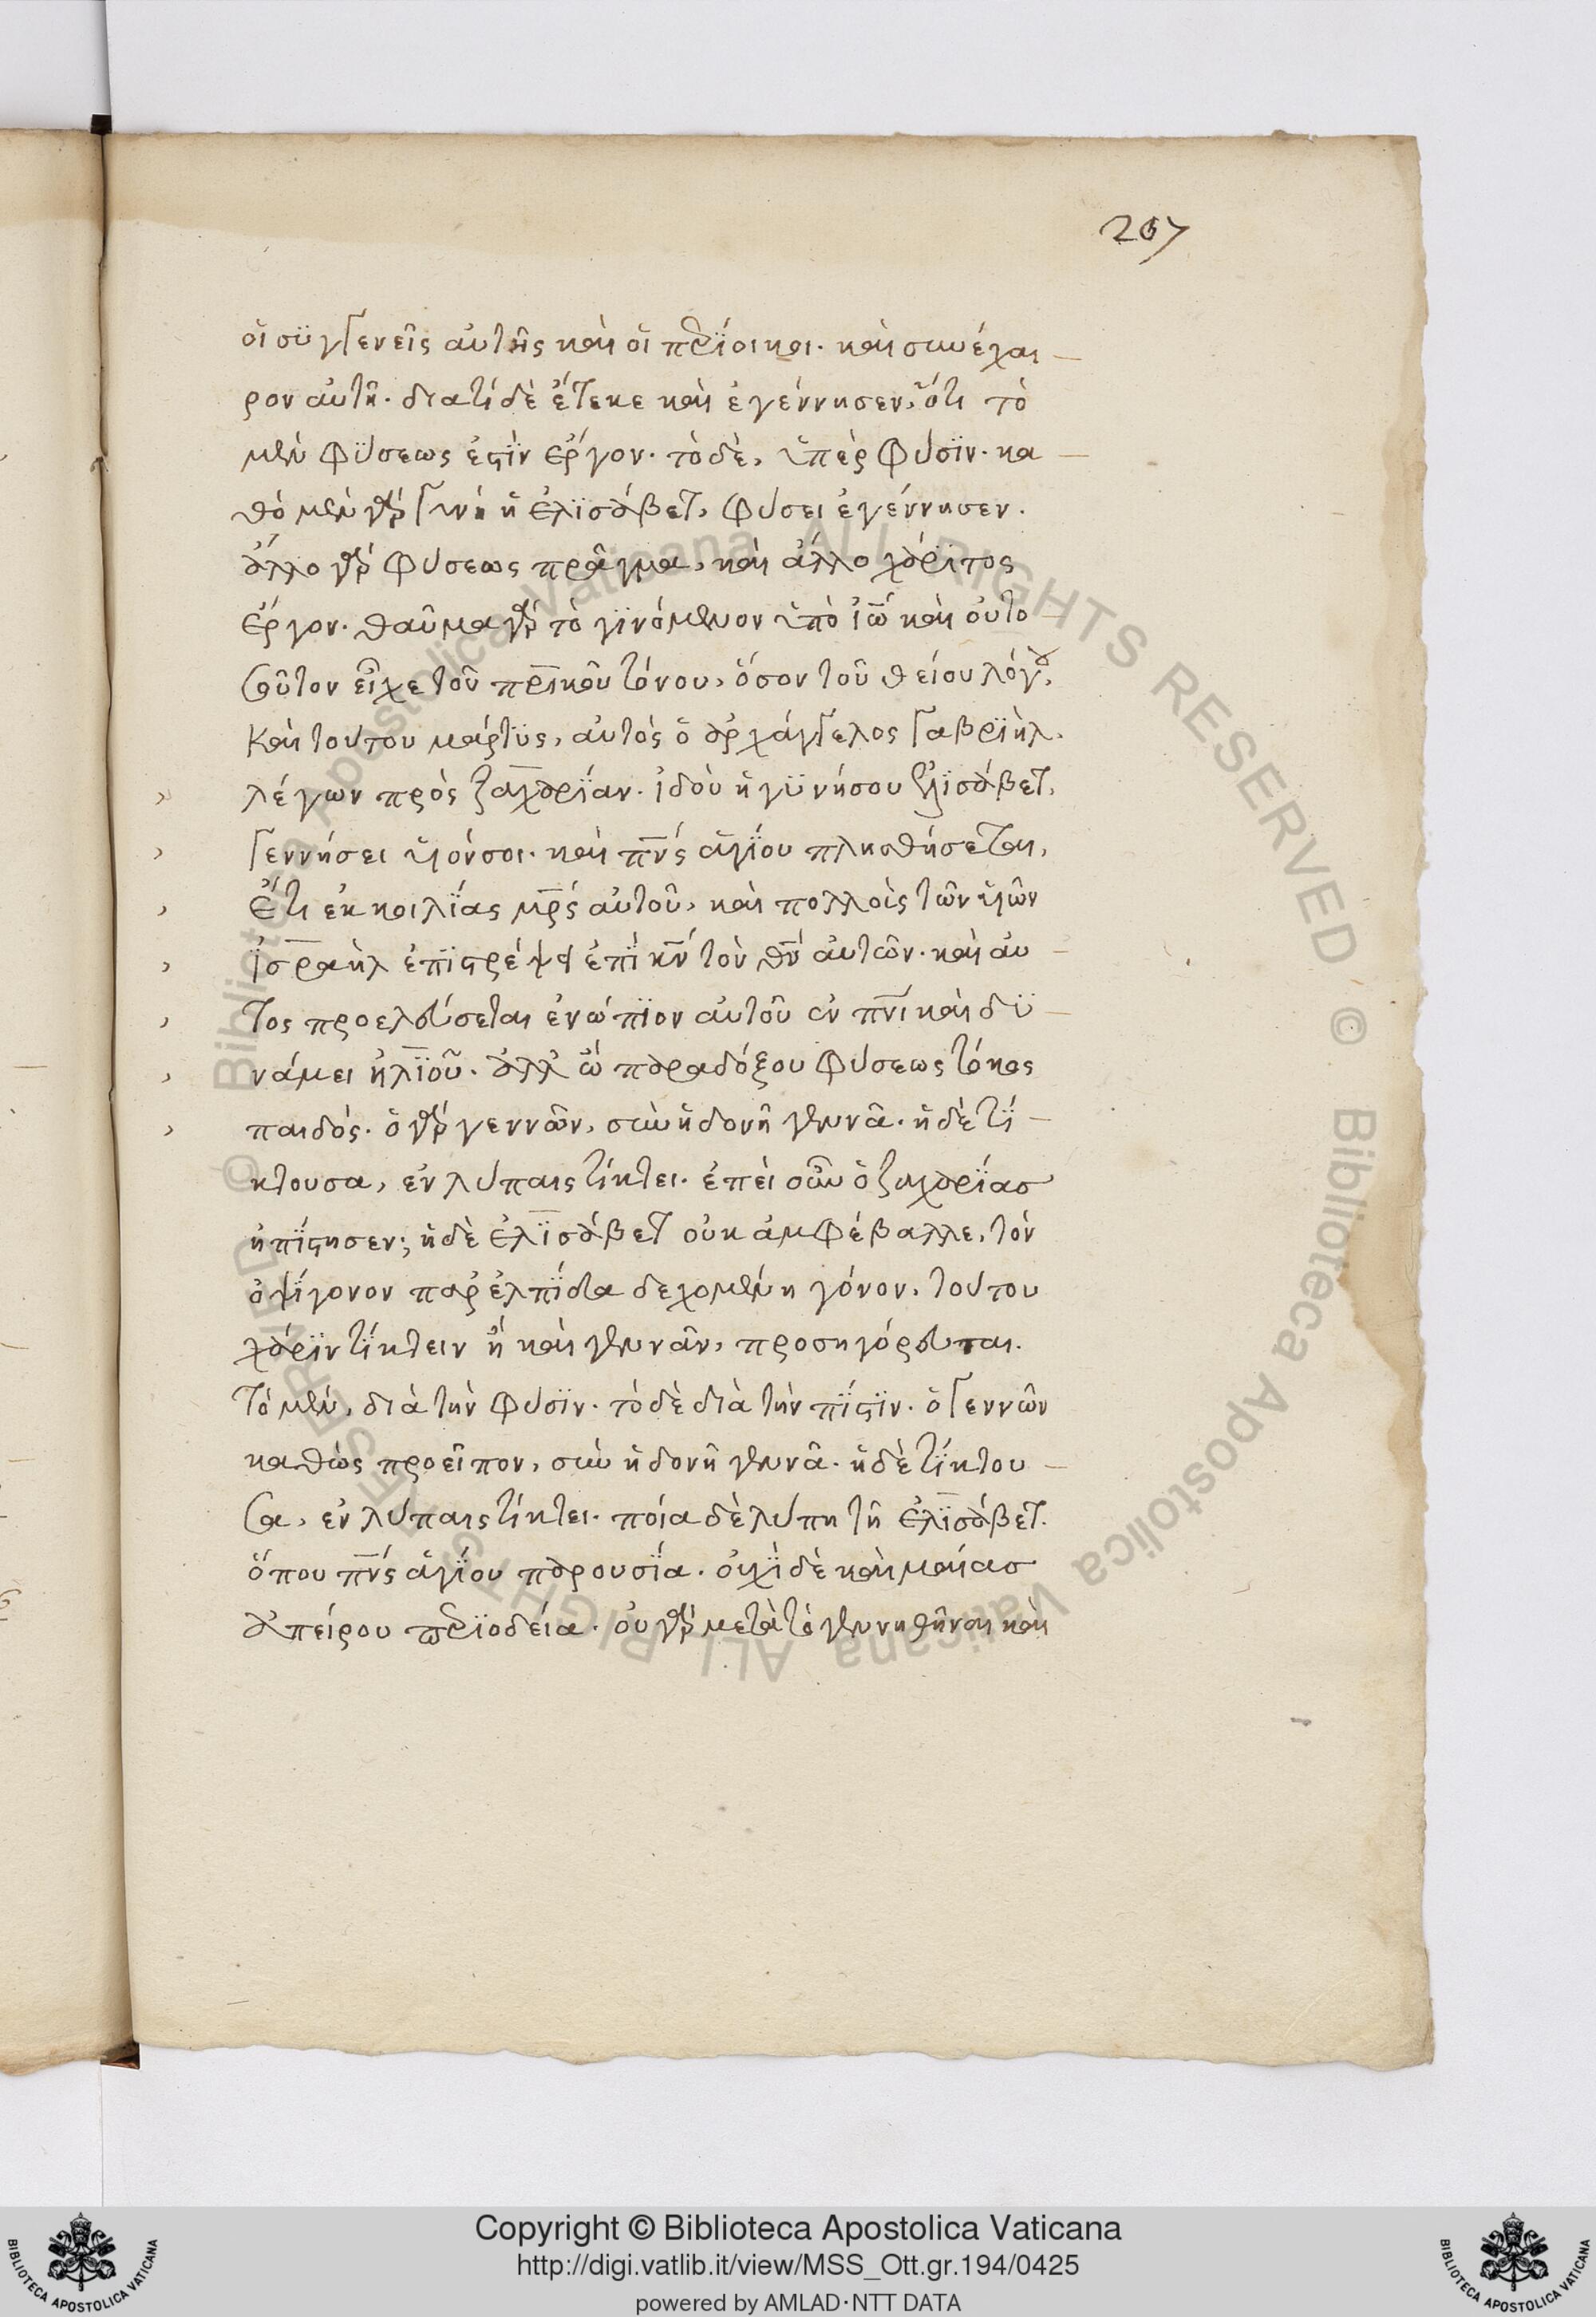 207
οἱ συγγενεῖς αὐτῆς καὶ οἱ πεϊρίοικοι· καὶ συνέχαι
ρον αὐτῆ· διατί δὲ ἔτεκε καὶ ἐγέννησεν, ὅτι τὸ
μὲν φϋσεως ἐστϊν ἔργον· τὸ δὲ, ὑπὲρ φύσϊν· κα
θὸ μὲν γὰρ γυνὴ ἡ ἐλϊσάβετ, φύσει ἐγέννησεν·
ἄλλο γὰρ φύσεως πρᾶγμα, καὶ ἄλλο χάριτος
ἔργον· θαῦμα γὰρ τὸ γϊνόμενον ὑπὸ ἰω̅ καὶ οὐ το
σοῦτον εἶχε τοῦ πρ̅ικοῦ τόνου, ὅσον τοῦ θείου λόγου,
καὶ τούτου μάρτϋς, αὐτὸς ὁ ἀρχάγγελος γαβρϊήλ,
λέγων πρὸς ζαχαρϊαν· ἰδοὺ ἡ γϋνή σου ἐλϊσάβετ,
γεννήσει υἱόν σοι· καὶ πν̅ς ἁγΐου πλησθήσεται,
ἔτι ἐκ κοιλΐας μρ̅ς αὐτοῦ, καὶ πολλοὺς τῶν υἱῶν
ϊσραὴλ ἐπϊστρέψει ἐπϊ κν̅ τὸν θν̅ αὐτῶν· καὶ αὐ
τος προελεύσεται ἐνώπϊον αὐτοῦ ἐν πν̅ι καὶ δϋ
νάμει ἠλϊοῦ· ἀλλ ὢ παραδόξου φύσεως τόκος
παιδός· ὁ γὰρ γεννῶν, σὺν ἡδονῆ γεννᾶ· ἡ δὲ τΐ
κτουσα, ἐν λύπαις τίκτει· ἐπεὶ οὖν ὁ ζαχαρΐας
ἠπΐστησεν; ἡ δὲ ἐλϊσάβετ οὐκ ἀμφέβαλλε, τὸν
ὀψΐγονον παρ ἐλπΐδα δεχομένη γόνον, τούτου
χάρϊν τΐκτειν ἢ καὶ γεννᾶν, προσηγόρευται.
τὸ μὲν, διὰ τὴν φύσϊν· τὸ δὲ διὰ τὴν πΐστϊν· ὁ γεννῶν
καθὼς προεῖπον, σὺν ἡδονῆ γεννᾶ· ἡ δὲ τΐκτου
σα, ἐν λύπαις τίκτει· ποία δὲ λύπη τῆ ἐλϊσάβετ.
ὅπου πν̅ς ἁγΐου παρουσΐα· οὐχϊ δὲ καὶ μαίας
ἀπείρου περϊοδεία· οὐ γὰρ μετὰ τὸ γεννηθῆναι καὶ
Copyright © Biblioteca Apostolica Vaticana
http://digi.vatlib.it/view/MSS_Ott.gr.194/0425
powered by AMLAD·NTT DATA